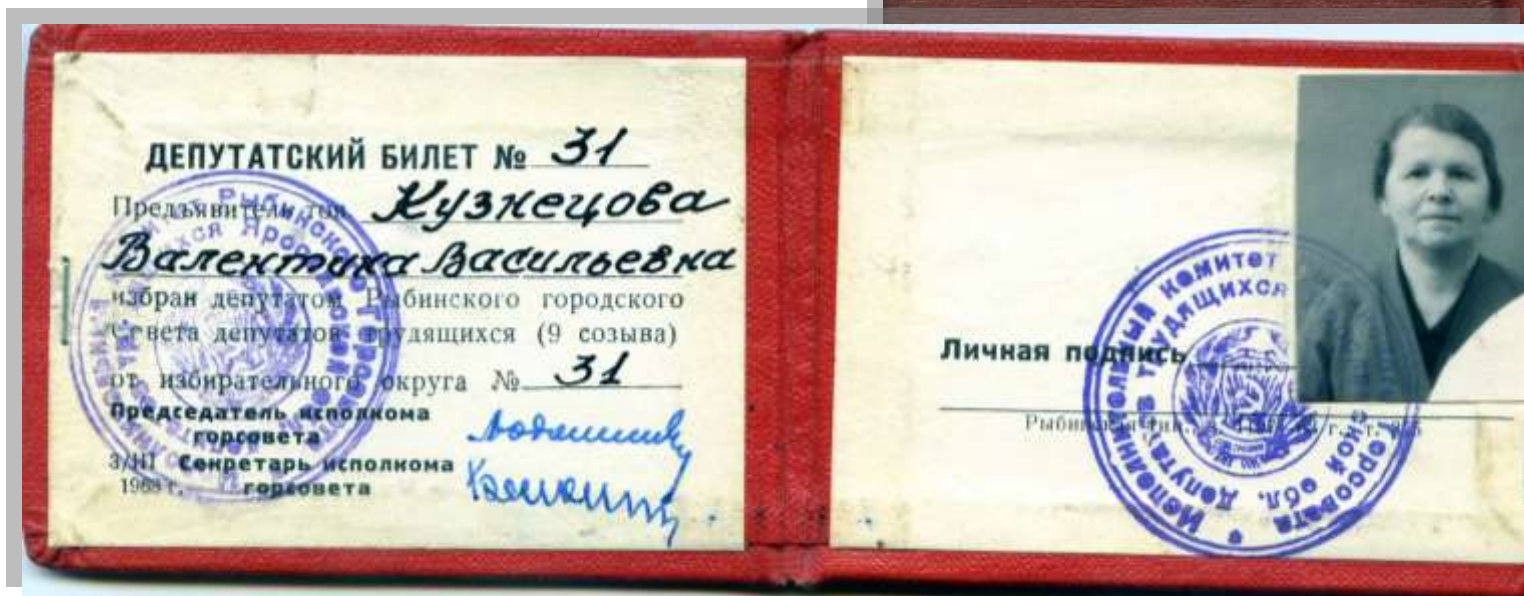 ДЕПУТАТСКИЙ БИЛЕТ № 31
Предъявитель тов. Кузнецова
Валентина Васильевна
избран депутатом Рыбинского городского
Совета депутатов трудящихся (9 созыва)
от избирательного округа № 31
Председатель исполкома
горсовета
3/III Секретарь исполкома
1963 г. горсовета
Личная подпись
Исполнительный комитет
Горсовета
депутатов трудящихся
ской обл.